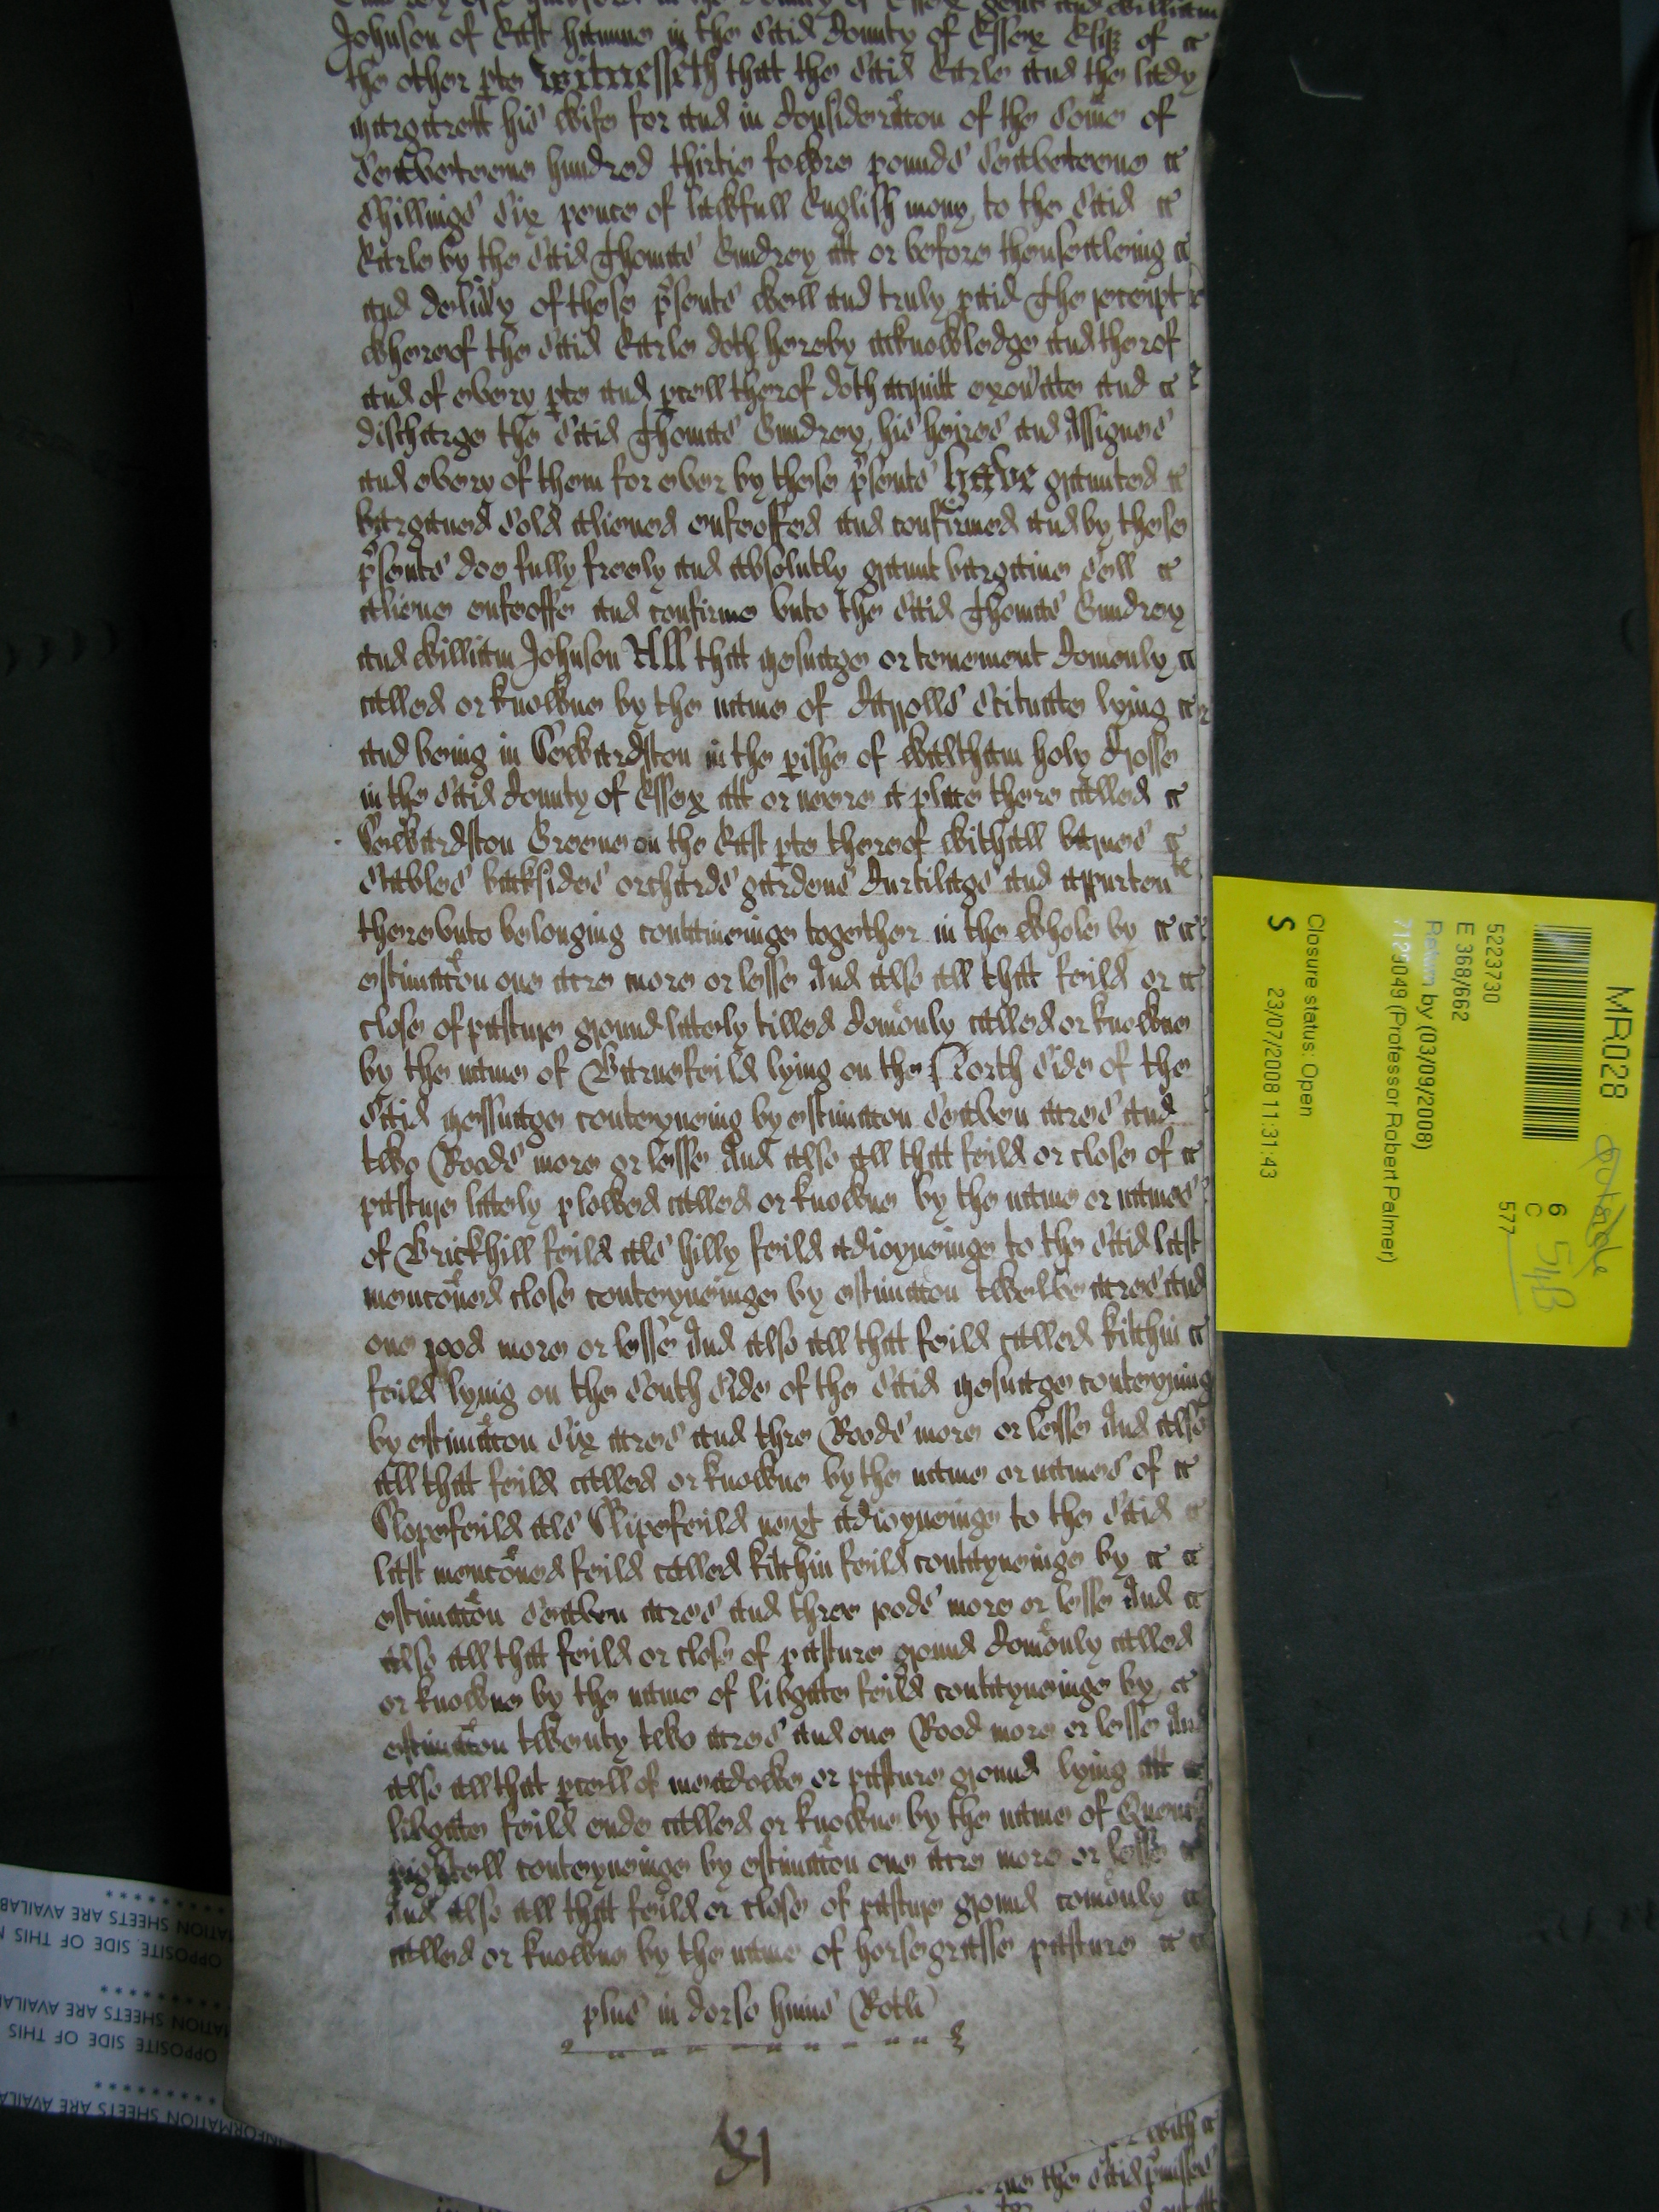 Johnson of East hamme in the said County of Essex Esqr of
the other pte Witnesseth that the said Earle and the lady
Margarett his wife for and in Consideracon of the some of
Seaventeene hundred thirtie fowre pounds Seaventeene
shillings six pence of lawfull English mony to the said
Earle by the said Thomas Gundrey att or before thensealeing
and delivy of these psents well and truly paid The receipt
whereof the said Earle doth hereby acknowledge and therof
and of every pte and pcell therof doth acquitt exonate and
discharge the said Thomas Gundrey his heires and Assignes
and every of them for ever by these psents have graunted
bargained sold aliened enfeoffed and confirmed and by these
psents doe fully freely and absolutly graunt bargaine sell
aliene enfeoffe and confirme unto the said Thomas Gundrey
and William Johnson All that mesuage or tenement Comonly
called or knowne by the name of Carrolls scituate lying
and being in Sewardston in the pishe of Waltham holy Crosse
in the said County of Essex att or neere a place there called
Sewardston Greene on the East pte thereof with all barnes
stables backsides orchards gardens Curtilags and appurten
thereunto belonging containeinge together in the whole by
estimacon one acre more or lesse And also all that feild or
close of pasture ground lately tilled Comonly called or knowne
by the name of Barnefeild lying on the North side of the
said messuage conteyneing by estimacon seaven acres and
two Roods more or lesse And also all that feild or close of
pasture lately plowed called or knowne by the name or names
of Brickhill feild als hilly feild adioyneinge to the said last
menconed close conteyneinge by estimacon twelve acres and
one rood more or lesse And also all that feild called kitchin
feild lying on the South side of the said mesuage conteyning
by estimacon six acres and thre Roods more or lesse And also
all that feild called or knowne by the name or names of
Slopefeild als Slipefeild next adioyneinge to the said
last menconed feild called kitchin feild contayneinge by
estimacon seaven acres and three rods more or lesse And
also all that feild or close of pasture ground Comonly called
or knowne by the name of libgate feild contayneinge by
estimacon twenty two acres and one Rood more or lesse And
also all that pcell of meadowe or pasture ground lying att
libgate feild ende called or knowne by the name of
conteyneinge by estimacon one acre more or lesse
And also all that feild or close of pasture ground comonly
called or knowne by the name of horsegrasse pasture
plus in dorso huius Rotli
MR028
5223730
E 368/662
Return by (03/09/2008)
7123049 (Professor Robert Palmer)
Closure status: Open
S 23/07/2008 11:31:43
6
C
577
outside
54B
INFORMATION SHEETS ARE AVAILA
OPPOSITE SIDE OF THIS
MATION SHEETS ARE AVAILAB